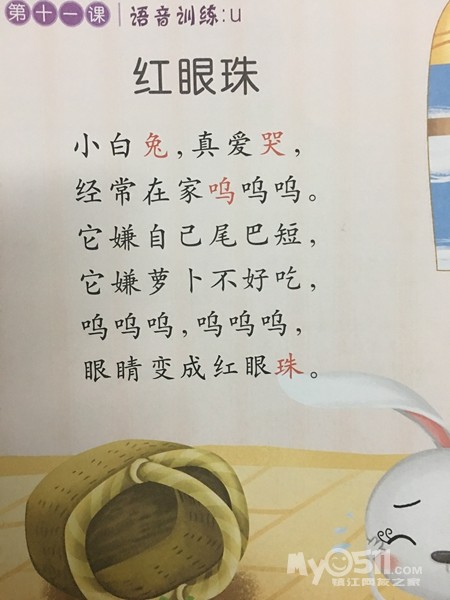 第十一课 语音训练:u
红眼珠
小白兔,真爱哭,
经常在家呜呜呜。
它嫌自己尾巴短,
它嫌萝卜不好吃,
呜呜呜,呜呜呜,
眼睛变成红眼珠。
My0511.com
镇江网友之家